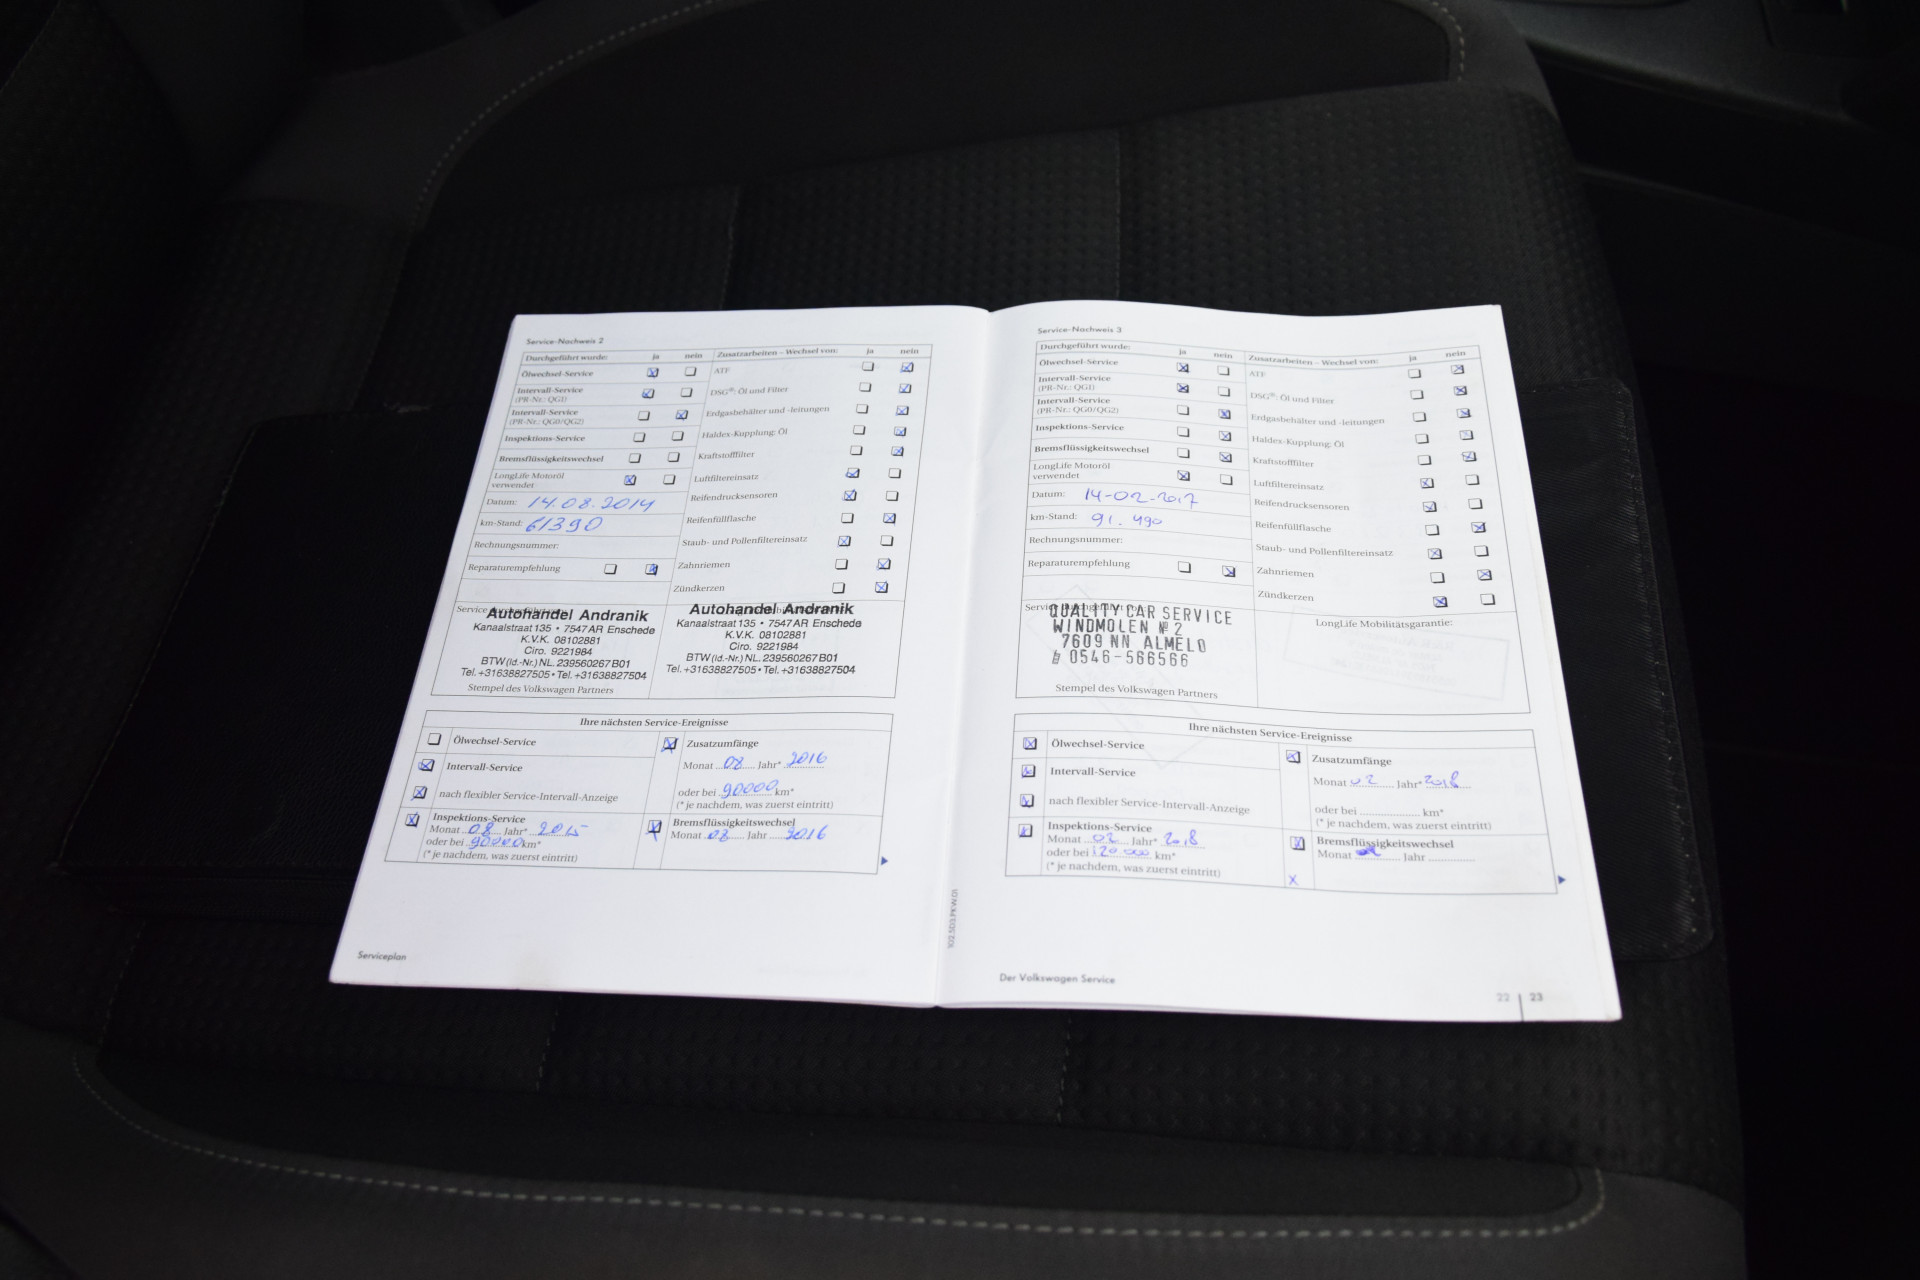 Service-Nachweis 2
Durchgeführt wurde: ja nein
Ölwechsel-Service
Intervall-Service
(PR-Nr.: QG1)
Intervall-Service
(PR-Nr.: QG0/QG2)
Inspektions-Service
Bremsflüssigkeitswechsel
LongLife Motoröl
verwendet
Datum: 14.08.2014
km-Stand: 61390
Rechnungsnummer:
Reparaturempfehlung
Zusatzarbeiten – Wechsel von: ja nein
ATF
DSG®: Öl und Filter
Erdgasbehälter und -leitungen
Haldex-Kupplung: Öl
Kraftstofffilter
Luftfiltereinsatz
Reifendrucksensoren
Reifenfüllflasche
Staub- und Pollenfiltereinsatz
Zahnriemen
Zündkerzen
Autohandel Andranik
Kanaalstraat 135 • 7547 AR Enschede
K.V.K. 08102881
Ciro. 9221984
BTW (Id.-Nr.) NL. 239560267 B01
Tel. +31638827505 • Tel. +31638827504
Stempel des Volkswagen Partners
Autohandel Andranik
Kanaalstraat 135 • 7547 AR Enschede
K.V.K. 08102881
Ciro. 9221984
BTW (Id.-Nr.) NL. 239560267 B01
Tel. +31638827505 • Tel. +31638827504
Ihre nächsten Service-Ereignisse
Ölwechsel-Service
Intervall-Service
nach flexibler Service-Intervall-Anzeige
Inspektions-Service
Monat 08 Jahr* 2015
oder bei 90000 km*
(* je nachdem, was zuerst eintritt)
Zusatzumfänge
Monat 08 Jahr* 2016
oder bei 90000 km*
(* je nachdem, was zuerst eintritt)
Bremsflüssigkeitswechsel
Monat 08 Jahr 2016
Serviceplan
Service-Nachweis 3
Durchgeführt wurde: ja nein
Ölwechsel-Service
Intervall-Service
(PR-Nr.: QG1)
Intervall-Service
(PR-Nr.: QG0/QG2)
Inspektions-Service
Bremsflüssigkeitswechsel
LongLife Motoröl
verwendet
Datum: 14-02-2017
km-Stand: 91.490
Rechnungsnummer:
Reparaturempfehlung
Zusatzarbeiten – Wechsel von: ja nein
ATF
DSG®: Öl und Filter
Erdgasbehälter und -leitungen
Haldex-Kupplung: Öl
Kraftstofffilter
Luftfiltereinsatz
Reifendrucksensoren
Reifenfüllflasche
Staub- und Pollenfiltereinsatz
Zahnriemen
Zündkerzen
QUALITY CAR SERVICE
WINDMOLEN № 2
7609 NN ALMELO
0546-566566
Stempel des Volkswagen Partners
LongLife Mobilitätsgarantie:
Ihre nächsten Service-Ereignisse
Ölwechsel-Service
Intervall-Service
nach flexibler Service-Intervall-Anzeige
Inspektions-Service
Monat 02 Jahr* 2018
oder bei 120 000 km*
(* je nachdem, was zuerst eintritt)
Zusatzumfänge
Monat 02 Jahr* 2018
oder bei km*
(* je nachdem, was zuerst eintritt)
Bremsflüssigkeitswechsel
Monat Jahr
x
Der Volkswagen Service
22 | 23